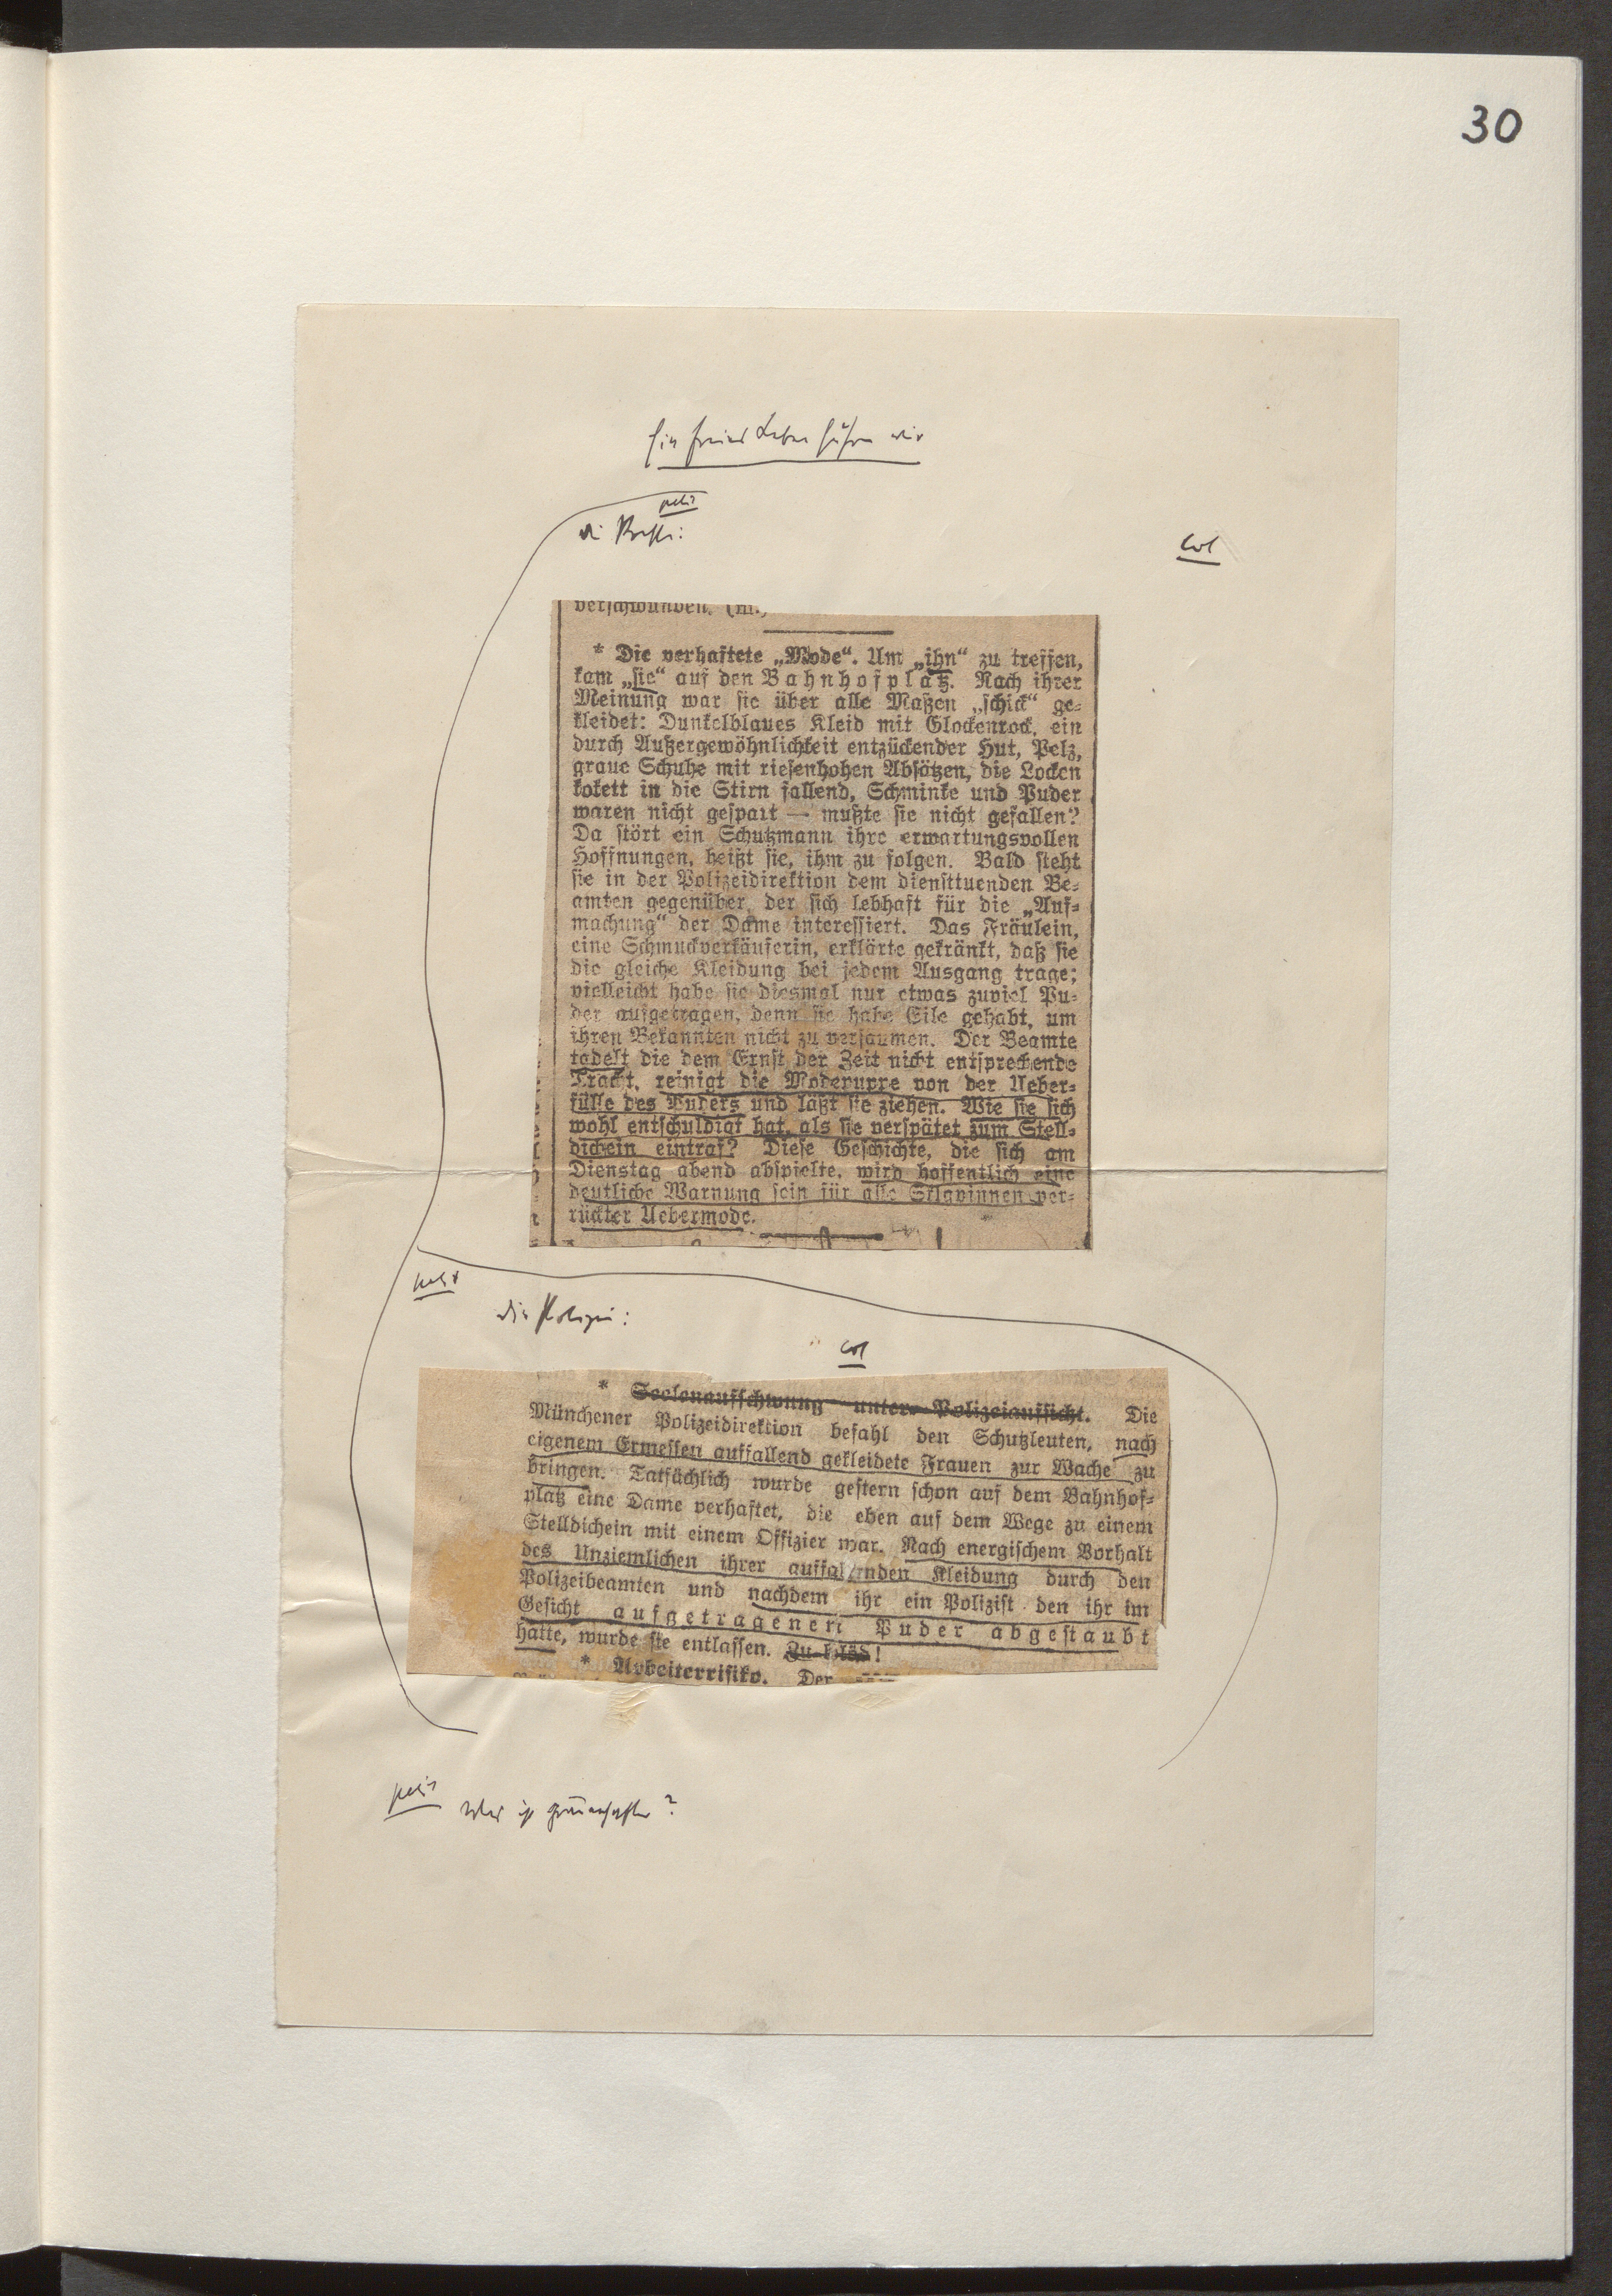 30
Ein freies Leben führen wir
petit
die Presse:
Col
verschwunden. (m.)
* Die verhaftete „Mode“. Um „ihn“ zu treffen,
kam „sie“ auf den Bahnhofplatz. Nach ihrer
Meinung war sie über alle Maßen „schick“ ge-
kleidet: Dunkelblaues Kleid mit Glockenrock, ein
durch Außergewöhnlichkeit entzückender Hut, Pelz,
graue Schuhe mit riesenhohen Absätzen, die Locken
kokett in die Stirn fallend, Schminke und Puder
waren nicht gespart — mußte sie nicht gefallen?
Da stört ein Schutzmann ihre erwartungsvollen
Hoffnungen, heißt sie, ihm zu folgen. Bald steht
sie in der Polizeidirektion dem diensttuenden Be-
amten gegenüber, der sich lebhaft für die „Auf-
machung“ der Dame interessiert. Das Fräulein,
eine Schmuckverkäuferin, erklärte gekränkt, daß sie
die gleiche Kleidung bei jedem Ausgang trage;
vielleicht habe sie diesmal nur etwas zuviel Pu-
der aufgetragen, denn sie habe Eile gehabt, um
ihren Bekannten nicht zu versäumen. Der Beamte
tadelt die dem Ernst der Zeit nicht entsprechende
Tracht, reinigt die Modepuppe von der Ueber-
fülle des Puders und läßt sie ziehen. Wie sie sich
wohl entschuldigt hat, als sie verspätet zum Stell-
dichein eintraf? Diese Geschichte, die sich am
Dienstag abend abspielte, wird hoffentlich eine
deutliche Warnung sein für alle Sklavinnen ver-
rückter Uebermode.
petit
die Polizei:
Col
* Seelenaufschwung unter Polizeiaufsicht. Die
Münchener Polizeidirektion befahl den Schutzleuten, nach
eigenem Ermessen auffallend gekleidete Frauen zur Wache zu
bringen. Tatsächlich wurde gestern schon auf dem Bahnhof-
platz eine Dame verhaftet, die eben auf dem Wege zu einem
Stelldichein mit einem Offizier war. Nach energischem Vorhalt
des Unziemlichen ihrer auffallenden Kleidung durch den
Polizeibeamten und nachdem ihr ein Polizist den ihr im
Gesicht aufgetragenen Puder abgestaubt
hatte, wurde sie entlassen. Zu blöd!
* Arbeiterrisiko. Der
petit
Was ist grauenhafter?